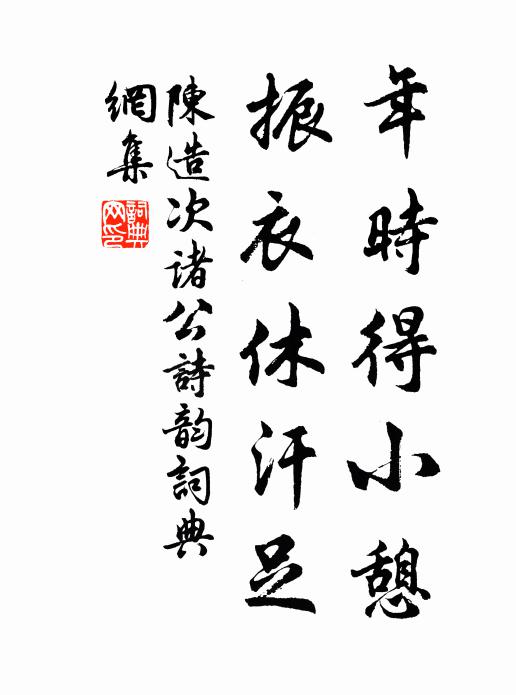 年時得小憩
振衣休汗足
陳造次諸公詩韵詞典
網集
詞典網印